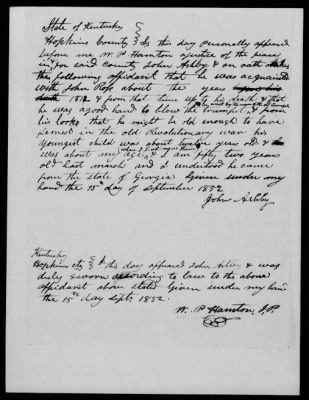 State of Kentucky }
Hopkins County } & this day personally appeared
before me W. P. Hamton a justice of the peace
in & for said county John Ashby & on oath makes
the following affidavit that he was acquainted
with John Ross about the year
1812 & from that time up to his death & that
he was a good hand to blow the trumpet, & from
his looks that he might be old enough to have
served in the old Revolutionary war his
youngest child was about twelve years old &
was about my age, & I am fifty two years
old last march and I understood he came
from the state of Georgia Given under my
hand the 15th day of September 1852
John Ashby
Kentucky
Hopkins cty } & this day appeared John Ashby & was
duly sworn according to law to the above
affidavit above stated Given under my hand
the 15th day Sept. 1852.
W. P. Hamton, J.P.